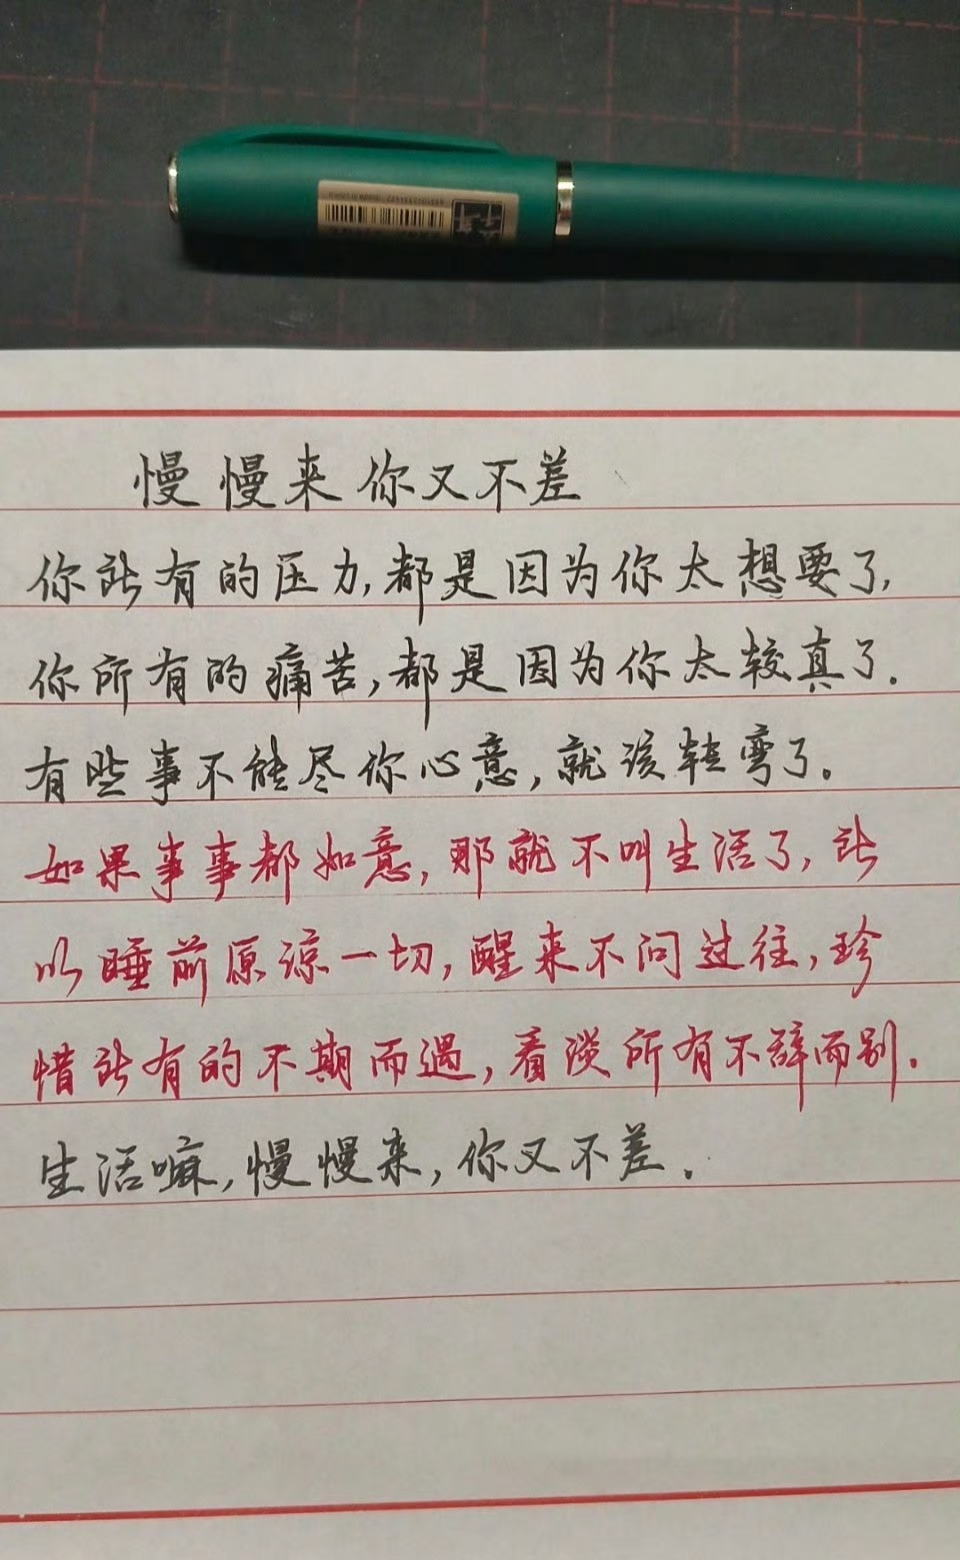 慢慢来你又不差
你所有的压力,都是因为你太想要了,
你所有的痛苦,都是因为你太较真了.
有些事不能尽你心意,就该转弯了。
如果事事都如意,那就不叫生活了,所
以睡前原谅一切,醒来不问过往,珍
惜所有的不期而遇,看淡所有不辞而别.
生活嘛,慢慢来,你又不差.